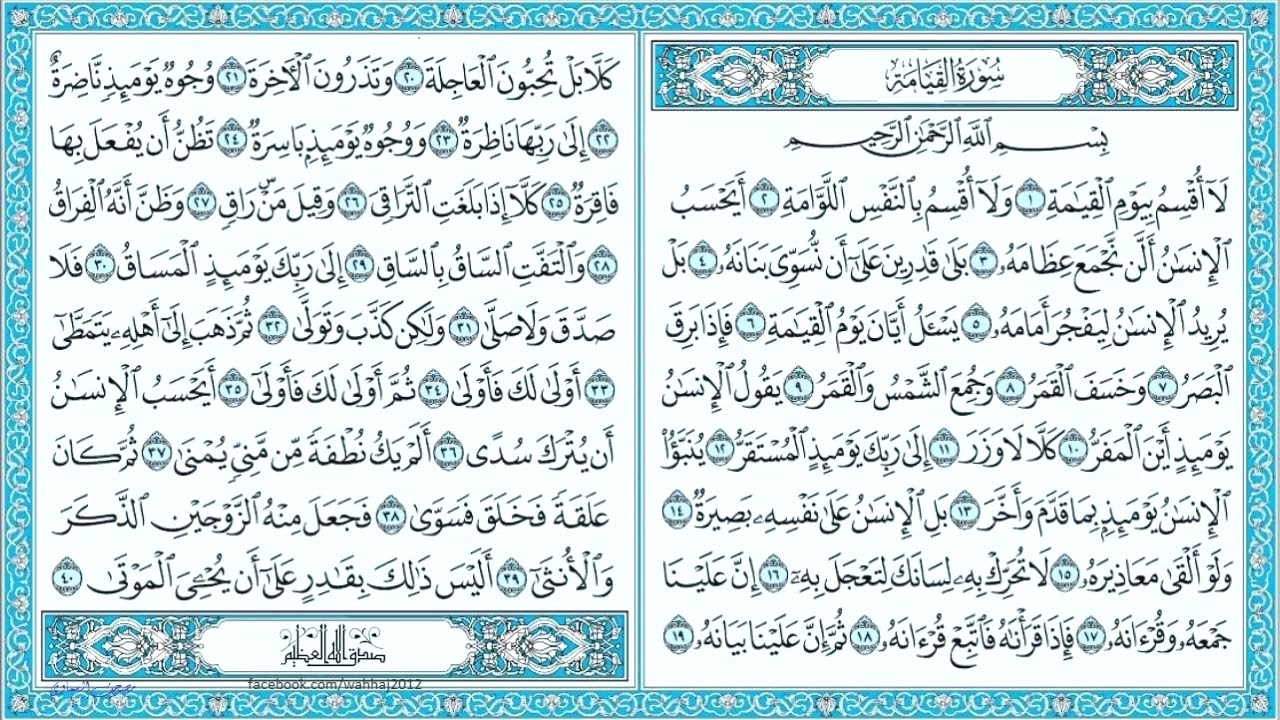 سُورَةُ القِيَامَةِ
بِسْمِ اللَّهِ الرَّحْمَٰنِ الرَّحِيمِ
لَآ أُقْسِمُ بِيَوْمِ ٱلْقِيَٰمَةِ ١ وَلَآ أُقْسِمُ بِٱلنَّفْسِ ٱللَّوَّامَةِ ٢ أَيَحْسَبُ
ٱلْإِنسَٰنُ أَلَّن نَّجْمَعَ عِظَامَهُۥ ٣ بَلَىٰ قَٰدِرِينَ عَلَىٰٓ أَن نُّسَوِّىَ بَنَانَهُۥ ٤ بَلْ
يُرِيدُ ٱلْإِنسَٰنُ لِيَفْجُرَ أَمَامَهُۥ ٥ يَسْـَٔلُ أَيَّانَ يَوْمُ ٱلْقِيَٰمَةِ ٦ فَإِذَا بَرِقَ
ٱلْبَصَرُ ٧ وَخَسَفَ ٱلْقَمَرُ ٨ وَجُمِعَ ٱلشَّمْسُ وَٱلْقَمَرُ ٩ يَقُولُ ٱلْإِنسَٰنُ
يَوْمَئِذٍ أَيْنَ ٱلْمَفَرُّ ١٠ كَلَّا لَا وَزَرَ ١١ إِلَىٰ رَبِّكَ يَوْمَئِذٍ ٱلْمُسْتَقَرُّ ١٢ يُنَبَّؤُا۟
ٱلْإِنسَٰنُ يَوْمَئِذٍۭ بِمَا قَدَّمَ وَأَخَّرَ ١٣ بَلِ ٱلْإِنسَٰنُ عَلَىٰ نَفْسِهِۦ بَصِيرَةٌ ١٤
وَلَوْ أَلْقَىٰ مَعَاذِيرَهُۥ ١٥ لَا تُحَرِّكْ بِهِۦ لِسَانَكَ لِتَعْجَلَ بِهِۦٓ ١٦ إِنَّ عَلَيْنَا
جَمْعَهُۥ وَقُرْءَانَهُۥ ١٧ فَإِذَا قَرَأْنَٰهُ فَٱتَّبِعْ قُرْءَانَهُۥ ١٨ ثُمَّ إِنَّ عَلَيْنَا بَيَانَهُۥ ١٩
كَلَّا بَلْ تُحِبُّونَ ٱلْعَاجِلَةَ ٢٠ وَتَذَرُونَ ٱلْءَاخِرَةَ ٢١ وُجُوهٌ يَوْمَئِذٍ نَّاضِرَةٌ
٢٢ إِلَىٰ رَبِّهَا نَاظِرَةٌ ٢٣ وَوُجُوهٌ يَوْمَئِذٍۭ بَاسِرَةٌ ٢٤ تَظُنُّ أَن يُفْعَلَ بِهَا
فَاقِرَةٌ ٢٥ كَلَّآ إِذَا بَلَغَتِ ٱلتَّرَاقِىَ ٢٦ وَقِيلَ مَنْ ۜ رَاقٍ ٢٧ وَظَنَّ أَنَّهُ ٱلْفِرَاقُ
٢٨ وَٱلْتَفَّتِ ٱلسَّاقُ بِٱلسَّاقِ ٢٩ إِلَىٰ رَبِّكَ يَوْمَئِذٍ ٱلْمَسَاقُ ٣٠ فَلَا
صَدَّقَ وَلَا صَلَّىٰ ٣١ وَلَٰكِن كَذَّبَ وَتَوَلَّىٰ ٣٢ ثُمَّ ذَهَبَ إِلَىٰٓ أَهْلِهِۦ يَتَمَطَّىٰٓ
٣٣ أَوْلَىٰ لَكَ فَأَوْلَىٰ ٣٤ ثُمَّ أَوْلَىٰ لَكَ فَأَوْلَىٰٓ ٣٥ أَيَحْسَبُ ٱلْإِنسَٰنُ
أَن يُتْرَكَ سُدًى ٣٦ أَلَمْ يَكُ نُطْفَةً مِّن مَّنِىٍّ يُمْنَىٰ ٣٧ ثُمَّ كَانَ
عَلَقَةً فَخَلَقَ فَسَوَّىٰ ٣٨ فَجَعَلَ مِنْهُ ٱلزَّوْجَيْنِ ٱلذَّكَرَ
وَٱلْأُنثَىٰٓ ٣٩ أَلَيْسَ ذَٰلِكَ بِقَٰدِرٍ عَلَىٰٓ أَن يُحْـِۧىَ ٱلْمَوْتَىٰ ٤٠
صدق الله العظيم
facebook.com/wahhaj2012